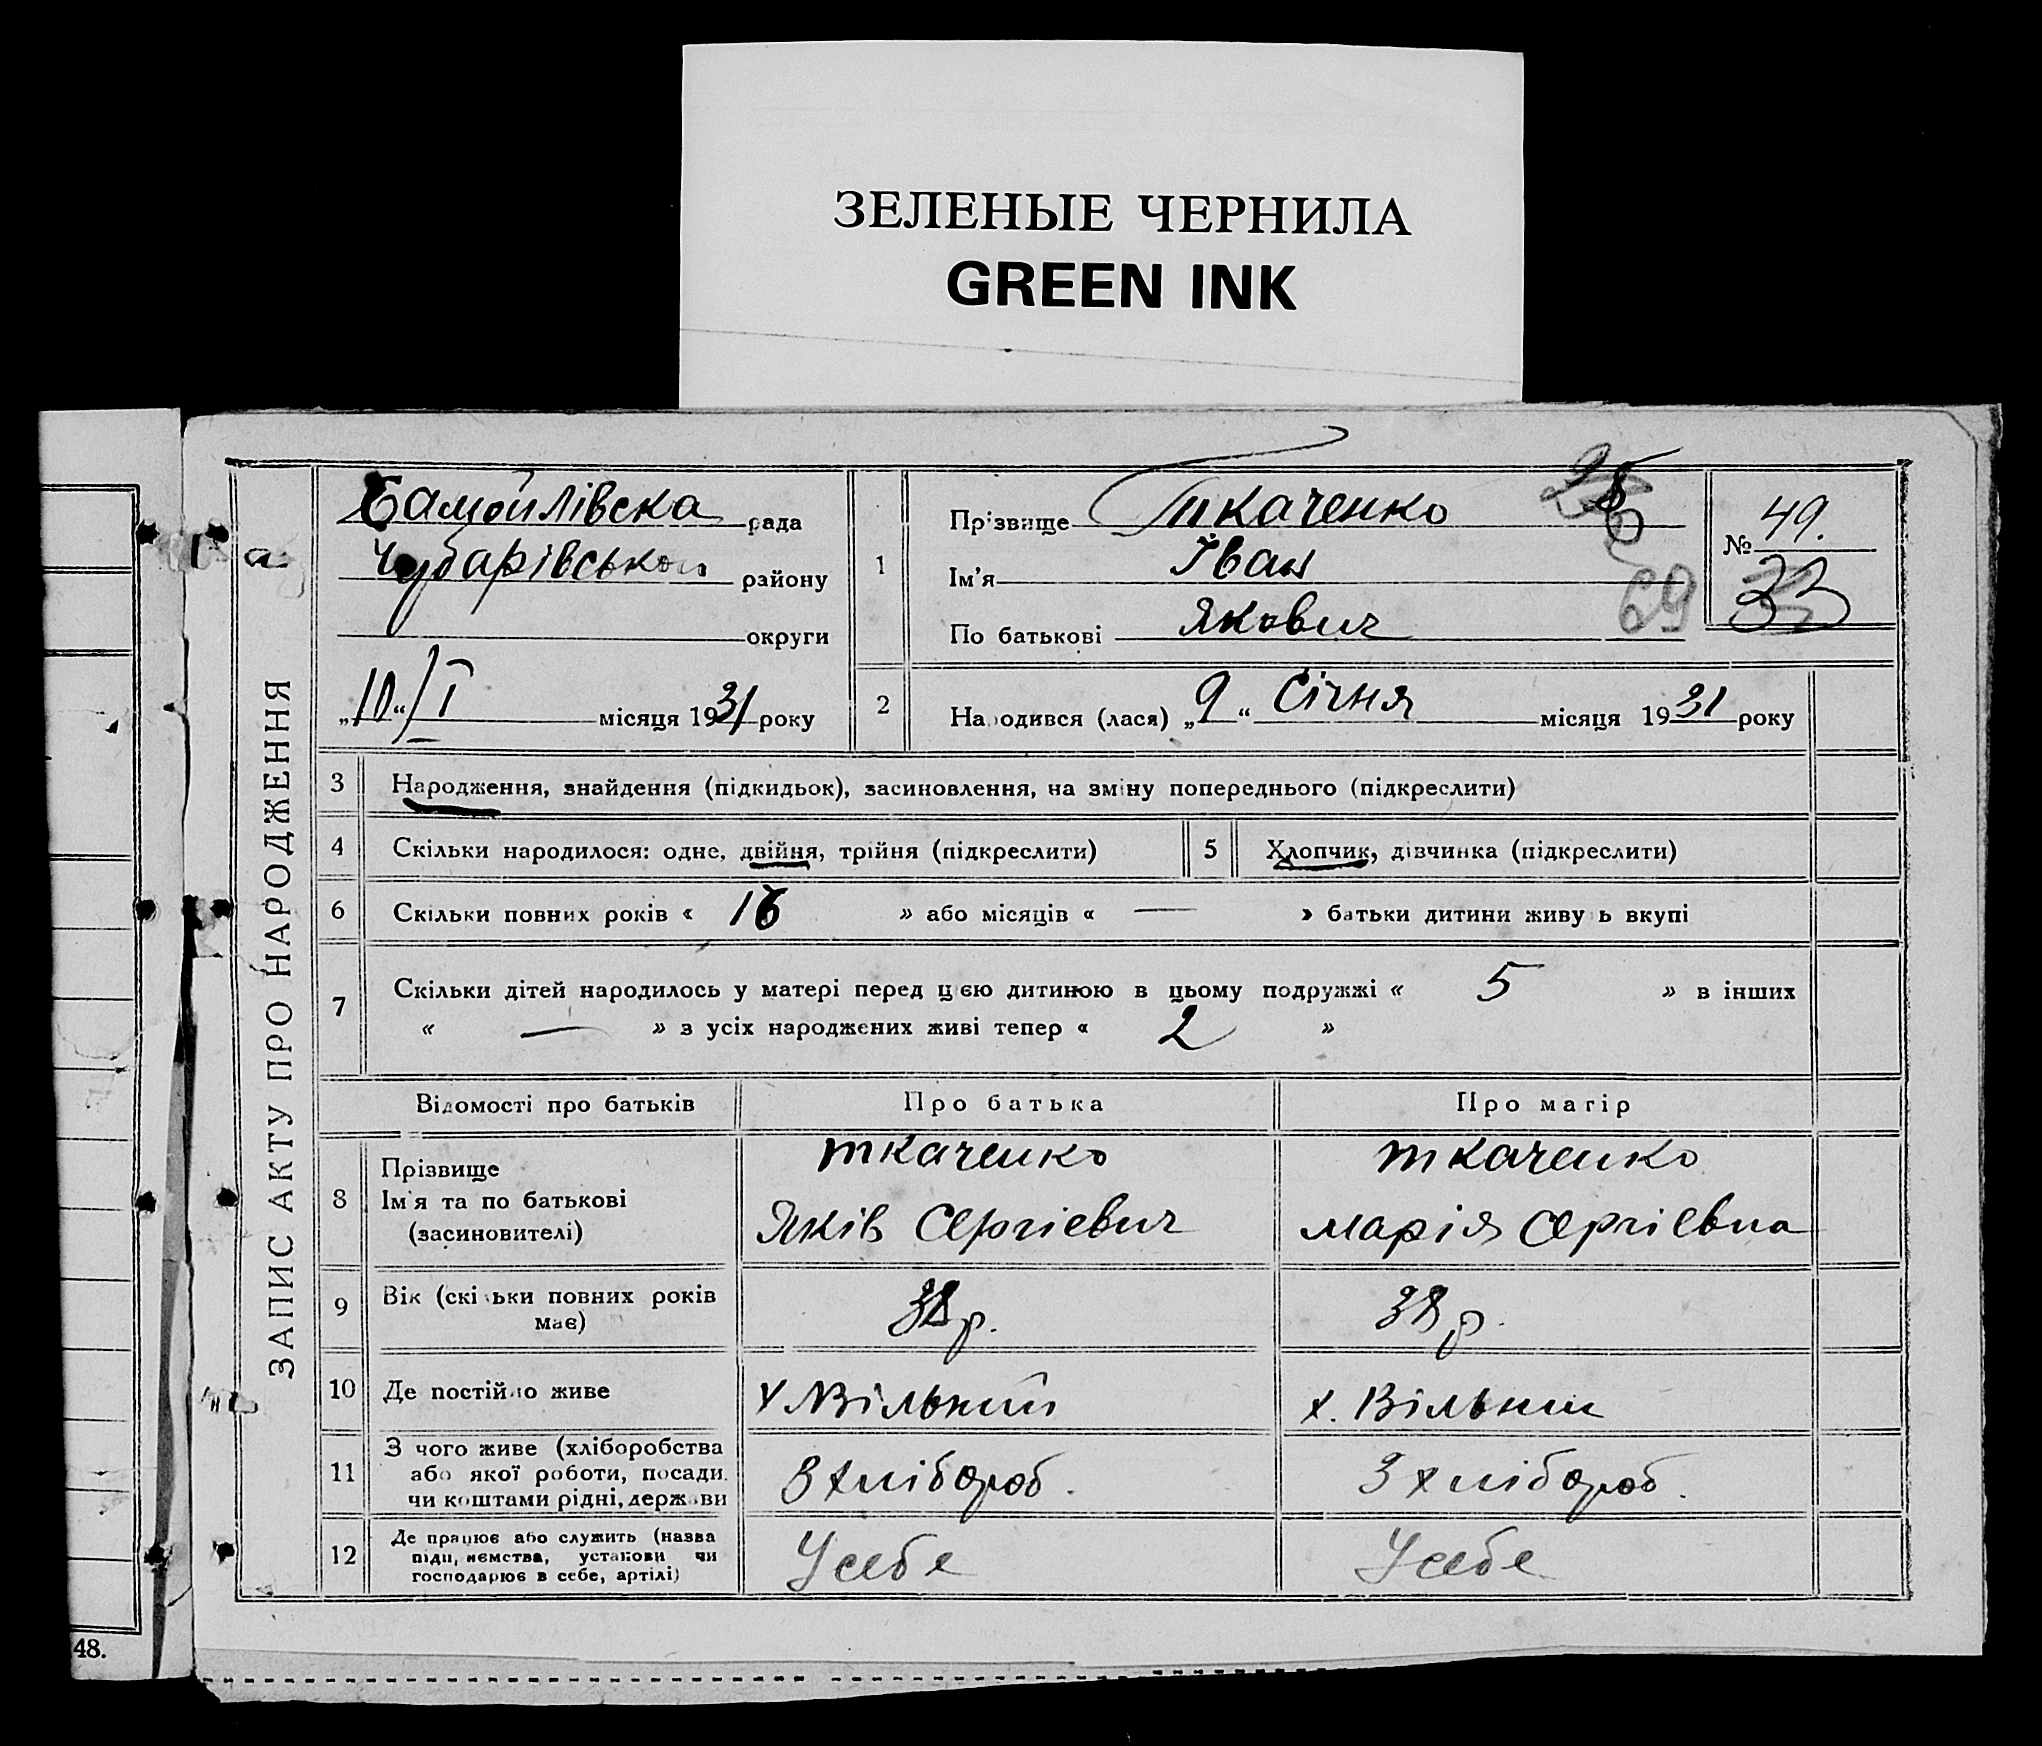 ЗЕЛЕНЫЕ ЧЕРНИЛА
GREEN INK
ЗАПИС АКТУ ПРО НАРОДЖЕННЯ
Самойлівска рада
Чубарівського району
округи
„10“/І місяця 1931 року
1
Прізвище Ткаченко
Ім'я Іван
По батькові Якович
69
№ 49.
33
2
Народився (лася) „9“ Січня місяця 1931 року
3 Народження, знайдення (підкидьок), засиновлення, на зміну попереднього (підкреслити)
4 Скільки народилося: одне, двійня, трійня (підкреслити)
5 Хлопчик, дівчинка (підкреслити)
6 Скільки повних років « 16 » або місяців « — » батьки дитини живуть вкупі
7 Скільки дітей народилось у матері перед цією дитиною в цьому подружжі « 5 » в інших
« — » з усіх народжених живі тепер « 2 »
Відомості про батьків Про батька Про матір
8 Прізвище
Ім'я та по батькові
(засиновителі)
Ткаченко
Яків Сергієвич
Ткаченко
Марія Сергієвна
9 Вік (скільки повних років
має)
38 р.
38 р.
10 Де постійно живе
х Вільний
х. Вільний
11 З чого живе (хліборобства
або якої роботи, посади,
чи коштами рідні, держави
З хлібороб.
З хлібороб.
12 Де працює або служить (назва
підприємства, установи чи
господарює в себе, артілі)
У себе
У себе
48.